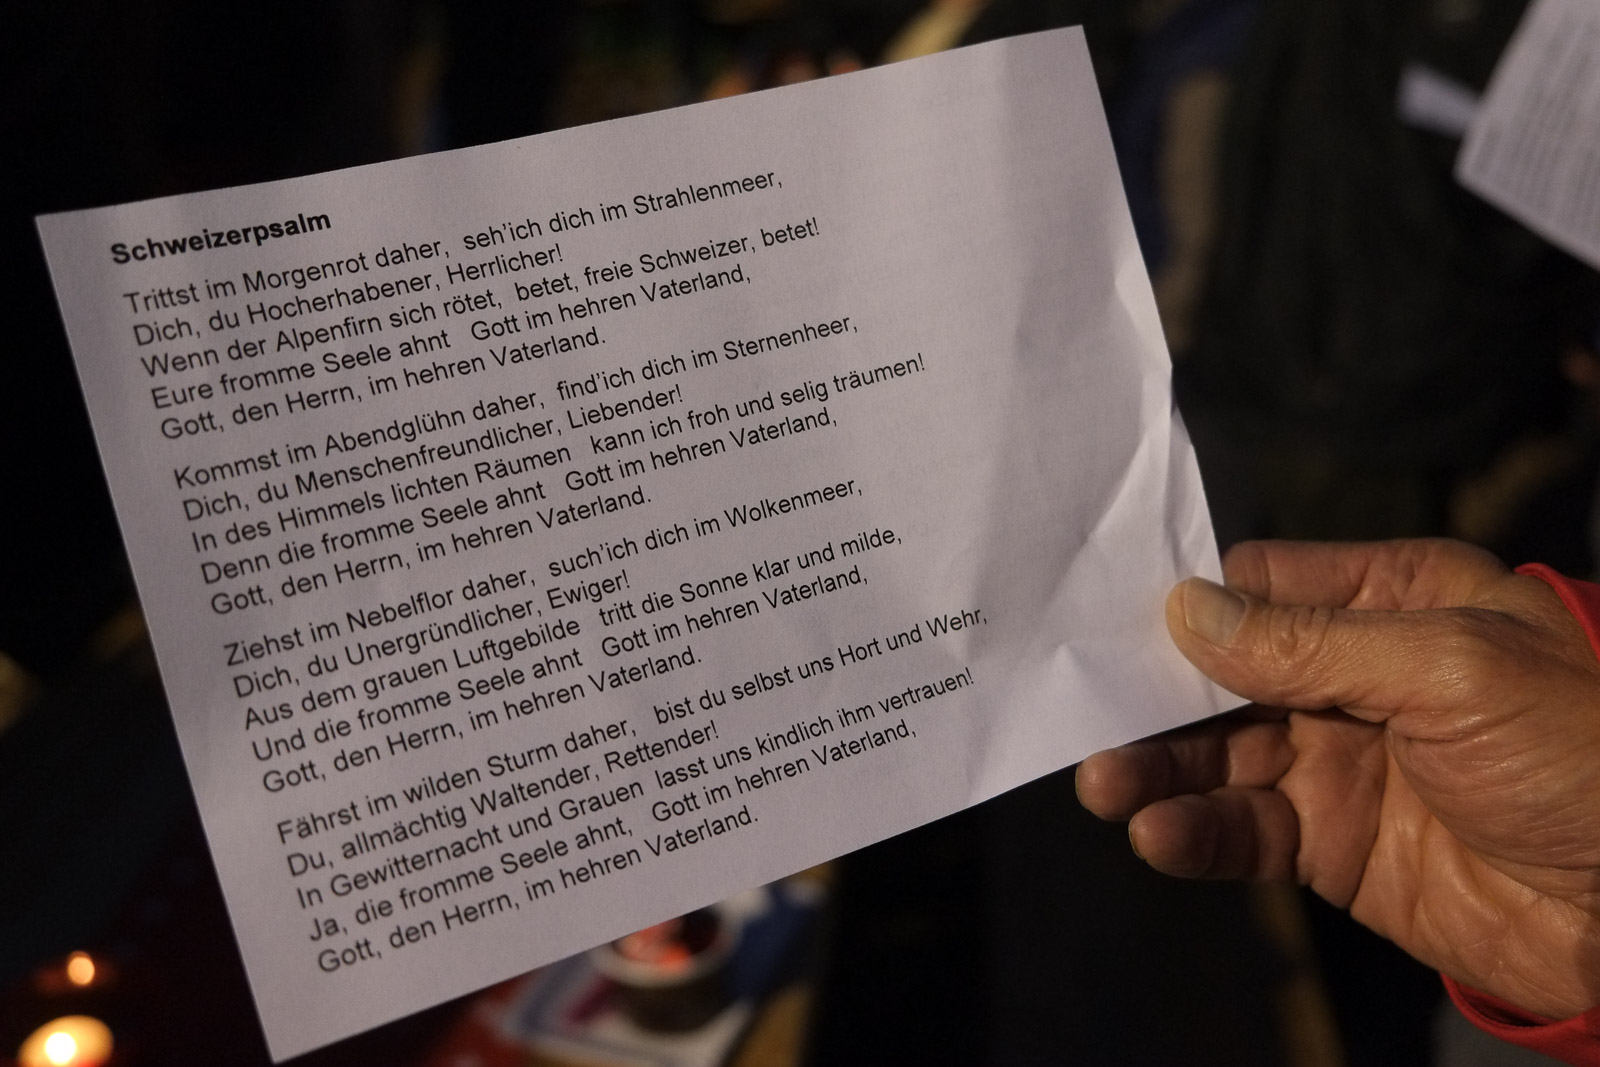 Schweizerpsalm
Trittst im Morgenrot daher, seh'ich dich im Strahlenmeer,
Dich, du Hocherhabener, Herrlicher!
Wenn der Alpenfirn sich rötet, betet, freie Schweizer, betet!
Eure fromme Seele ahnt Gott im hehren Vaterland,
Gott, den Herrn, im hehren Vaterland.
Kommst im Abendglühn daher, find'ich dich im Sternenheer,
Dich, du Menschenfreundlicher, Liebender!
In des Himmels lichten Räumen kann ich froh und selig träumen!
Denn die fromme Seele ahnt Gott im hehren Vaterland,
Gott, den Herrn, im hehren Vaterland.
Ziehst im Nebelflor daher, such'ich dich im Wolkenmeer,
Dich, du Unergründlicher, Ewiger!
Aus dem grauen Luftgebilde tritt die Sonne klar und milde,
Und die fromme Seele ahnt Gott im hehren Vaterland,
Gott, den Herrn, im hehren Vaterland.
Fährst im wilden Sturm daher, bist du selbst uns Hort und Wehr,
Du, allmächtig Waltender, Rettender!
In Gewitternacht und Grauen lasst uns kindlich ihm vertrauen!
Ja, die fromme Seele ahnt, Gott im hehren Vaterland,
Gott, den Herrn, im hehren Vaterland.